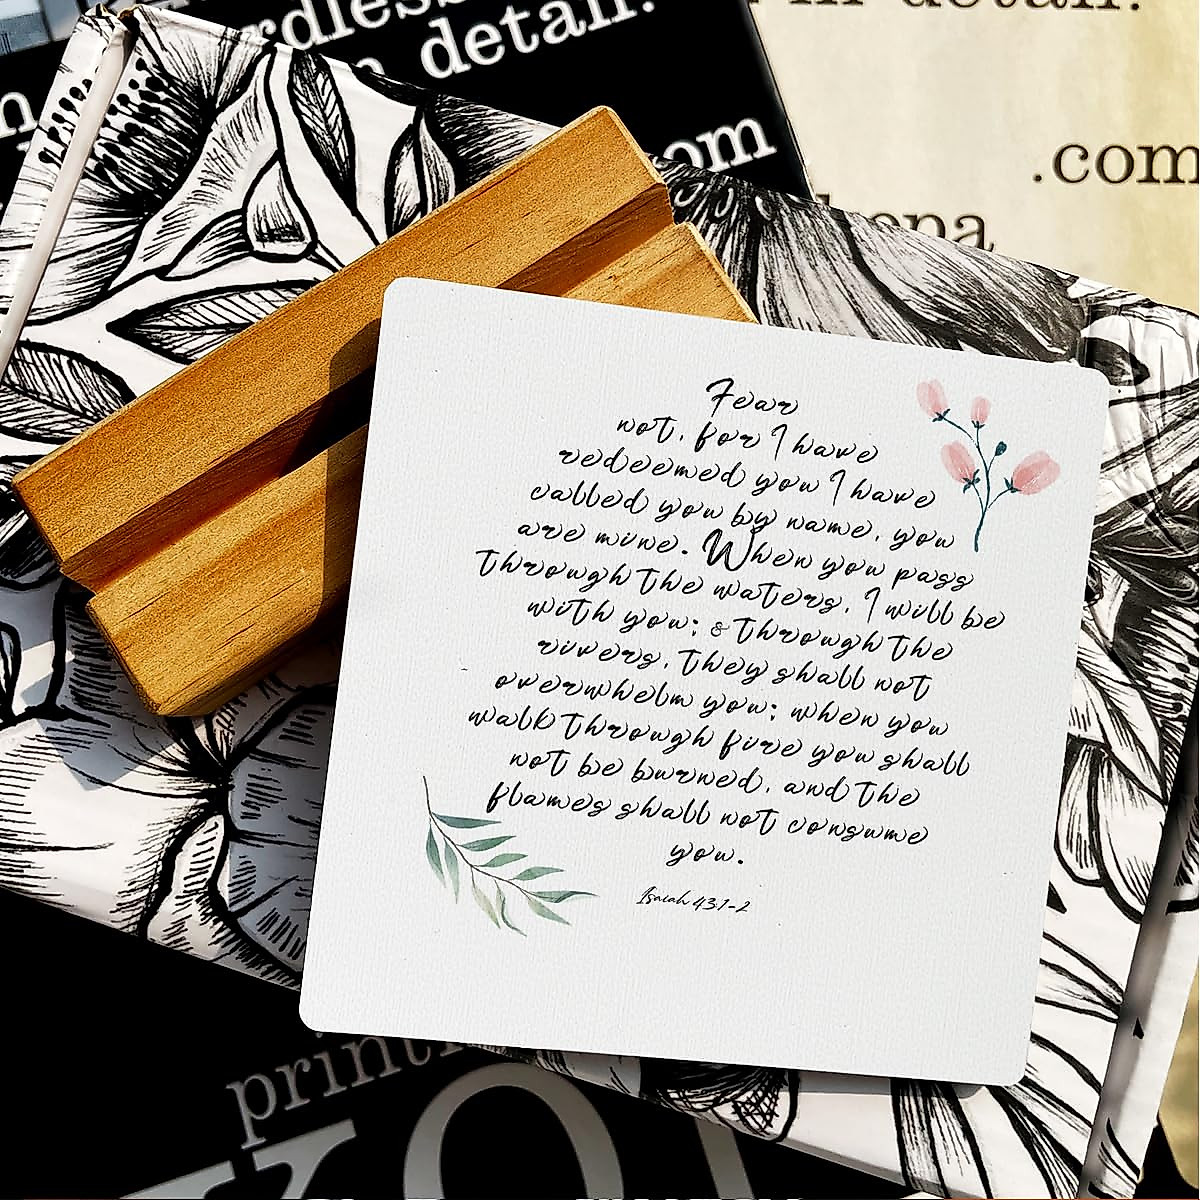 detail.
in detail.
om
.com
Fear
not, for I have
redeemed you I have
called you by name, you
are mine. When you pass
through the waters, I will be
with you; & through the
rivers, they shall not
overwhelm you; when you
walk through fire you shall
not be burned, and the
flames shall not consume
you.
Isaiah 43:1-2